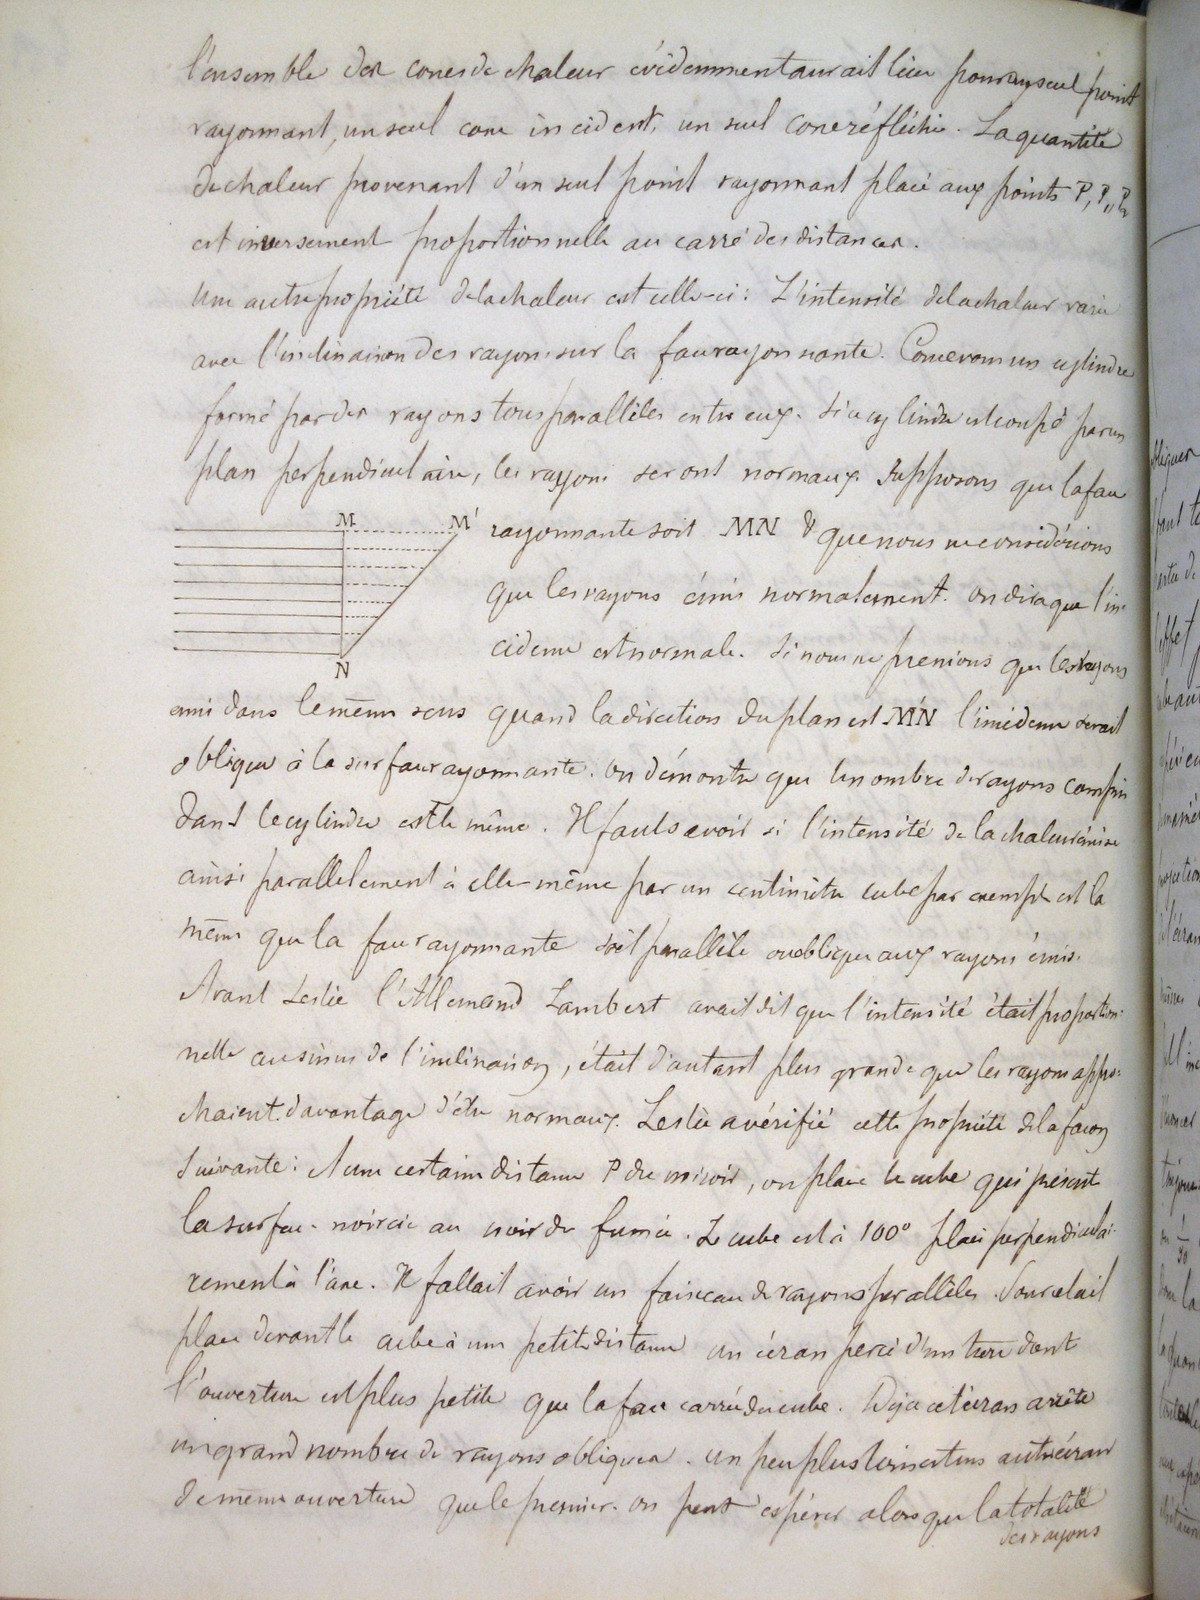 l'ensemble des cones de chaleur évidemment aurait lieu pour un seul point
rayonnant, un seul cone incident, un seul cone réfléchi. La quantité
de chaleur provenant d'un seul point rayonnant placé aux points P, P,, P
est inversement proportionnelle au carré des distances.
Une autre propriété de la chaleur est celle-ci: L'intensité de la chaleur varie
avec l'inclinaison des rayons sur la face rayonnante. Concevons un cylindre
formé par des rayons tous parallèles entre eux. Si ce cylindre est coupé par un
plan perpendiculaire, les rayons seront normaux. Supposons que la face
M M'
rayonnante soit MN & que nous ne considérions
que les rayons émis normalement. on dira que l'in-
cidence est normale. Si nous ne prenions que les rayons
N
émis dans le même sens quand la direction du plan est M'N l'incidence serait
oblique à la surface rayonnante. On démontre que le nombre de rayons compris
dans le cylindre est le même. Il faut savoir si l'intensité de la chaleur émise
ainsi parallelement à elle-même par un centimètre cube par exemple est la
même que la face rayonnante soit parallèle ou oblique aux rayons émis.
Avant Leslie l'Allemand Lambert avait dit que l'intensité était proportion-
nelle au sinus de l'inclinaison, était d'autant plus grande que les rayons appro-
chaient davantage d'être normaux. Leslie a vérifié cette propriété de la façon
suivante: A une certaine distance P du miroir, on place le cube qui présente
la surface noircie au noir de fumée. Le cube est à 100° placé perpendiculai-
rement à l'axe. Il fallait avoir un faisceau de rayons parallèles. Pour cela il
place devant le cube à une petite distance un écran percé d'un trou dont
l'ouverture est plus petite que la face carrée du cube. Déja cet écran arrête
un grand nombre de rayons obliques. un peu plus loin est un autre écran
de même ouverture que le premier. on peut espérer alors que la totalité
des rayons